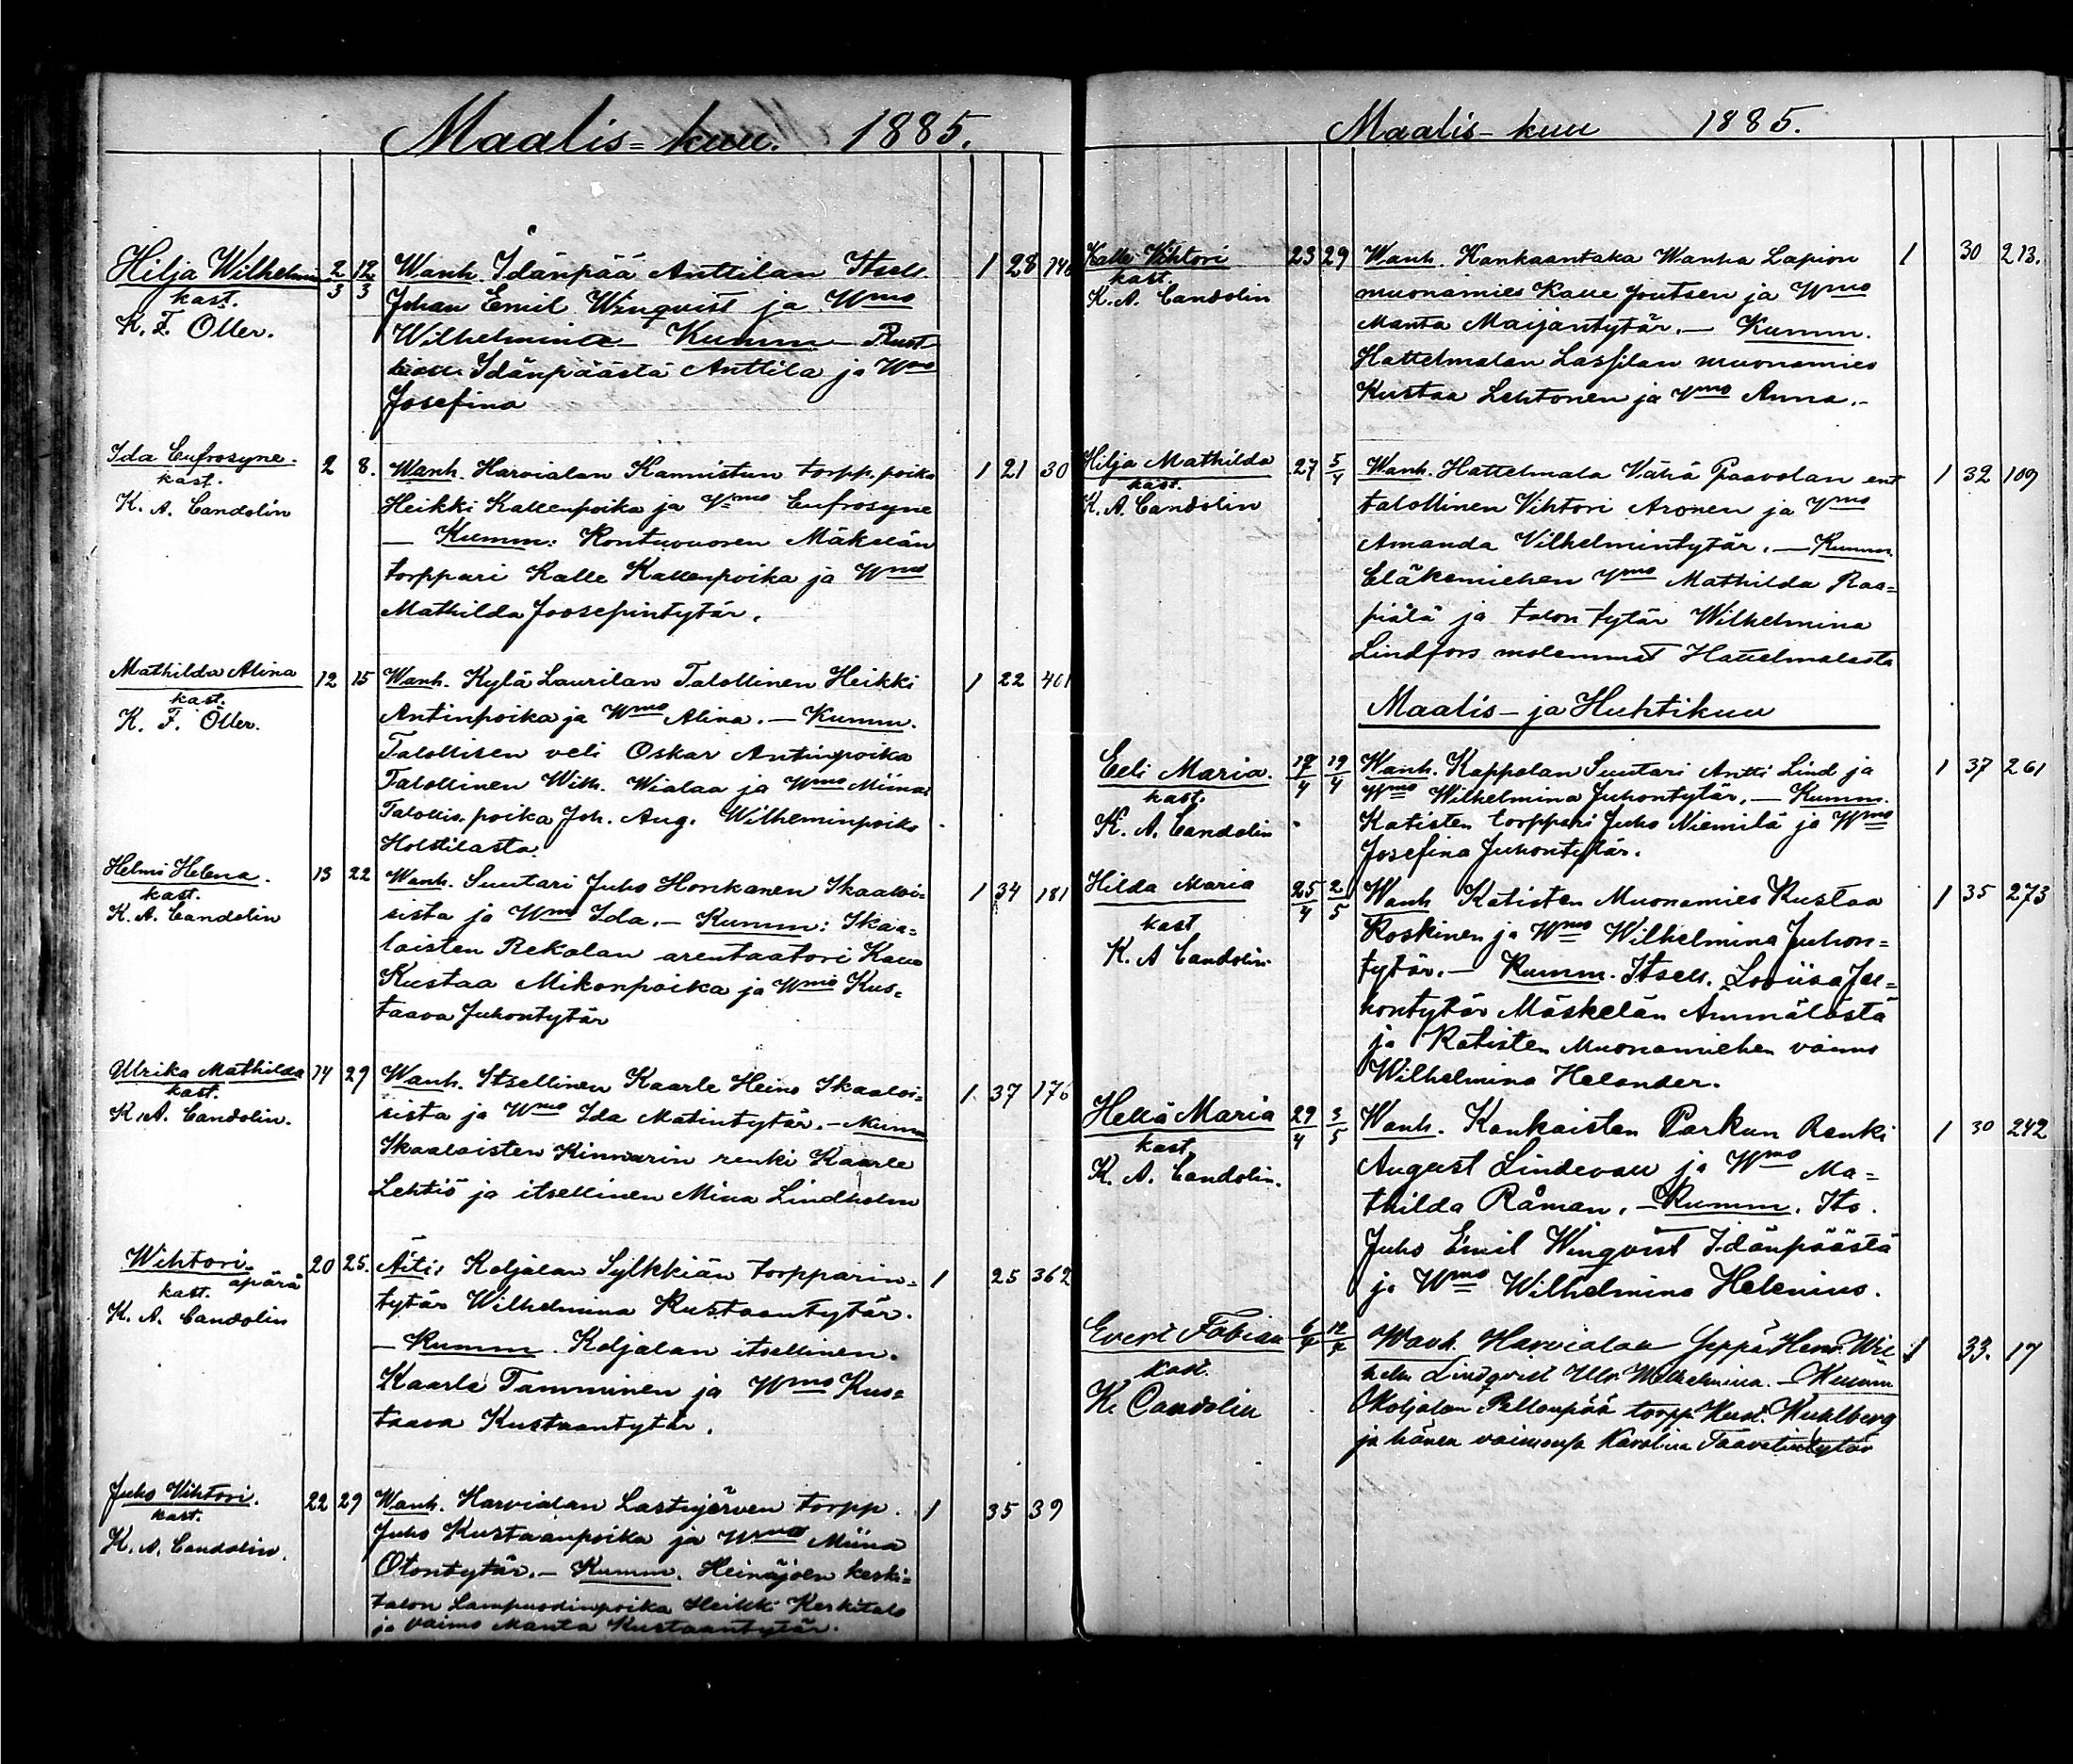 Maalis-kuu. 1885.
Hilja Wilhelmina 2/3 12/3 Wanh. Idänpää Anttilan Itsell. 1 28
kast. Johan Emil Winqvist ja Wmo
K. F. Öller. Wilhelmina — Kumm —
Idänpäästä Anttila ja Wmo
Josefina
Ida Eufrosyne. 2 8. Wanh. Harvialan Kannistun torpp. poika 1 21 30
kast. Heikki Kallenpoika ja Vmo Eufrosyne
K. A. Candolin — Kumm: Kontuvuoren Mäkelän
torppari Kalle Kallenpoika ja Wmo
Mathilda Joosepintytär.
Mathilda Alina 12 15 Wanh. Kylä Laurilan Talollinen Heikki 1 22 401
kast. Antinpoika ja Wmo Alina. — Kumm.
K. F. Öller. Talollisen veli Oskar Antinpoika
Talollinen Wilh. Wialaa ja Wmo Miina.
Tallollis. poika Joh. Aug. Wilheminpoika
Holstilasta.
Helmi Helena. 13 22 Wanh. Suutari Juho Honkanen Ikaaloi- 1 34 181
kast. sista ja Wmo Ida. — Kumm: Ikaa-
K. A. Candolin loisten Rekolan arentaatori Kalle
Kustaa Mikonpoika ja Wmo Kus-
taava Juhontytär
Ulrika Mathilda 14 29 Wanh. Itsellinen Kaarle Heino Ikaaloi- 1 37 176
kast. sista ja Wmo Ida Matintytär. — Kumm
K. A. Candolin. Ikaaloisten Kinnarin renki Kaarle
Lehtiö ja itsellinen Miina Lindholm
Wihtori. 20 25. Äiti: Koljalan Sylkkiän torpparin- 1 25 362
apärä
kast. tytär Wilhelmina Kustaantytär.
K. A. Candolin — Kumm. Koljalan itsellinen.
Kaarle Tamminen ja Wmo Kus-
taava Kustaantytär.
Juho Vihtori. 22 29 Wanh. Harvialan Lastujärven torpp. 1 35 39
kast. Juho Kustaanpoika ja Wmo Miina
K. A. Candolin. Otontytär. — Kumm. Heinäjoen keski-
talon Lampuodinpoika Heikki Keskitalo
ja vaimo Manta Kustaantytär.
Maalis-kuu 1885.
Kalle Vihtori 23 29 Wanh. Kankaantaka Wanha Lapion 1 30 213.
kast. muonamies Kalle Joutsen ja Wmo
K. A. Candolin Manta Maijantytär. — Kumm.
Hattelmalan Lassilan muonamies
Kustaa Lehtonen ja Vmo Anna. —
Hilja Mathilda 27 5/4 Wanh. Hattelmala Vähä Paavolan ent 1 32 109
kast. talollinen Vihtori Aronen ja Vmo
K. A. Candolin Amanda Vilhelmintytär. — Kumm.
Eläkemiehen Vmo Mathilda Raa-
piälä ja talon tytär Wilhelmina
Lindfors molemmat Hattelmalasta
Maalis- ja Huhtikuu
Eeli Maria. 17/4 19/4 Wanh. Kappolan Suutari Antti Lind ja 1 37 261
kast. Wmo Wilhelmina Juhontytär. — Kumm.
K. A. Candolin Katisten torppari Juho Niemilä ja Wmo
Josefina Juhontytär.
Hilda Maria 25/4 2/5 Wanh Katisten Muonamies Kustaa 1 35 273
kast Koskinen ja Wmo Wilhelmina Juhon-
K. A Candolin tytär. — Kumm. Itsell. Loviisa Ju-
hontytär Mäskelän Ämmälästä
ja Katisten Muonamiehen vaimo
Wilhelmina Helander.
Hellä Maria 29/4 3/5 Wanh. Kankaisten Parkun Renki 1 30 242
kast August Lindevall ja Wmo Ma-
K. A. Candolin. thilda Råman. — Kumm. Its.
Juho Emil Winqvist Idänpäästä
ja Wmo Wilhelmina Helenius.
Evert Fabian Wanh. Harvialan Seppä Henr. Wil 1 33. 17
kast. helm Lindqvist Wilhelmina. — Kumm
K. Candolin Koljalan Pellonpää torpp. Kust. Kuhlberg
ja hänen vaimonsa Karolina Taavetintytär